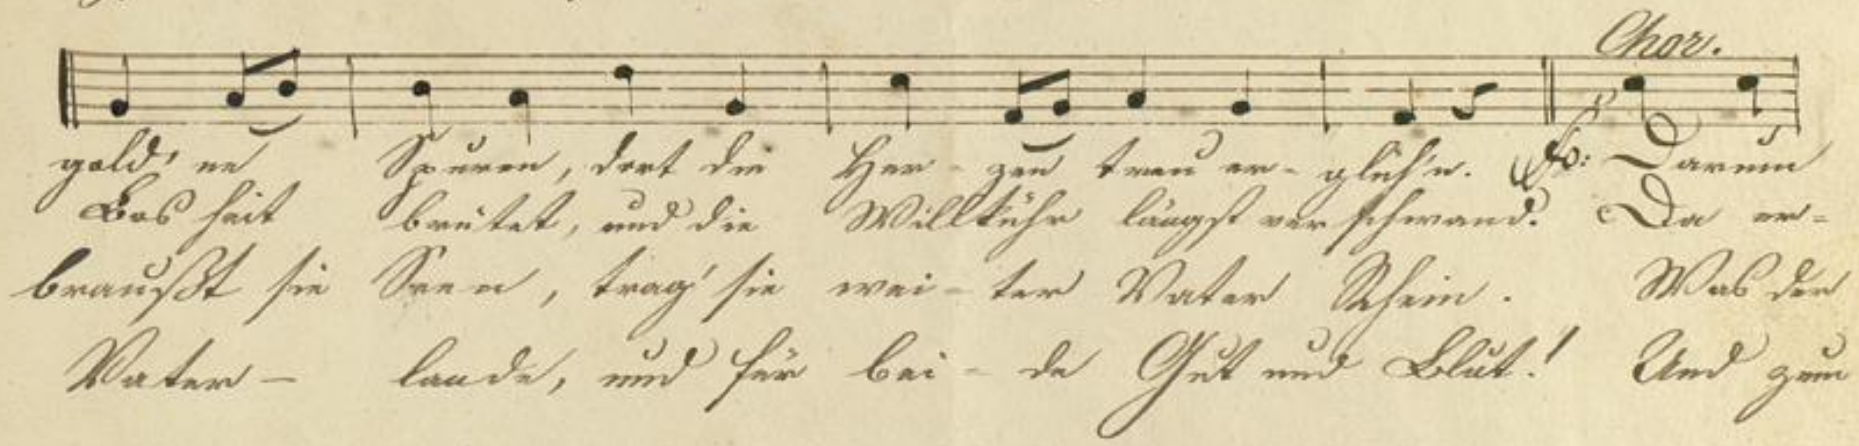 Chor.
gold'ne Spuren, dort die Her- zen treu er- glüh'n. Darum
Bosheit brütet, und die Willkühr längst verschwand. Da er=
braußt sie , trag' sie wei- ter Vater Rhein. Was der
Vater- lande, und für bei- de Gut und Blut! Und zum